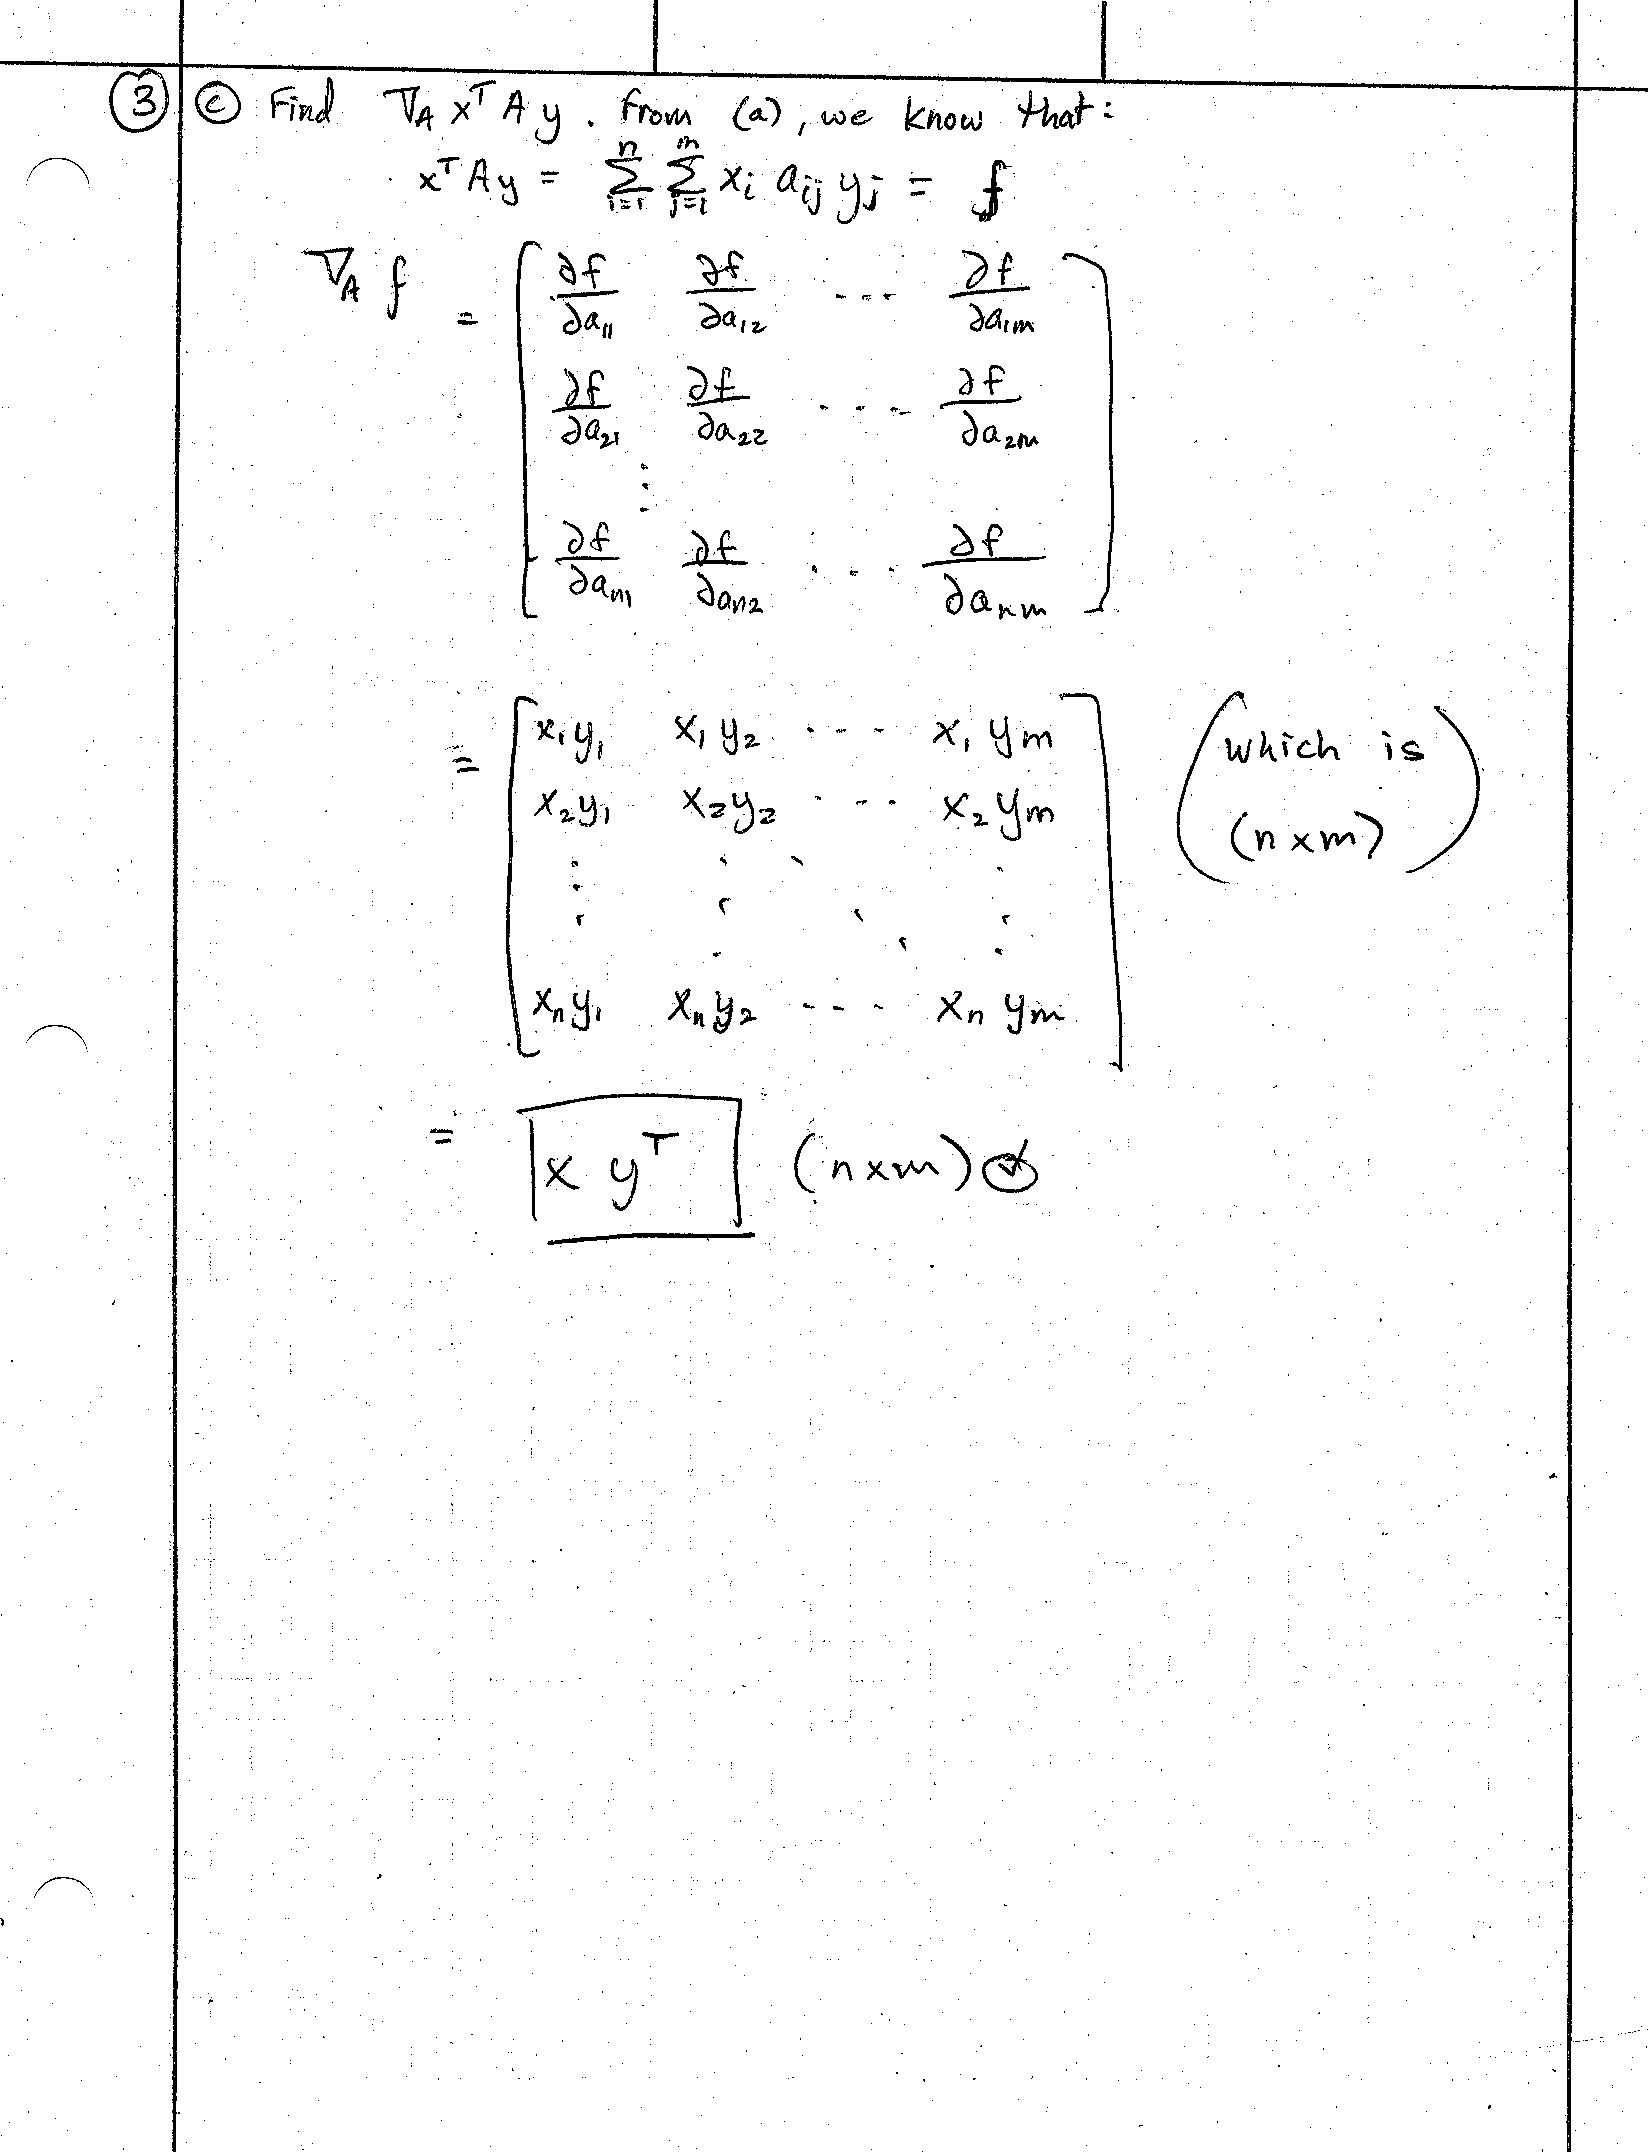 ③ ⓒ Find ∇_A x^T A y. From (a), we know that:
x^T A y = Σ_{i=1}^{n} Σ_{j=1}^{m} x_i a_ij y_j = f
∇_A f = [ ∂f/∂a_11 ∂f/∂a_12 ... ∂f/∂a_1m
∂f/∂a_21 ∂f/∂a_22 ... ∂f/∂a_2m
⋮
∂f/∂a_n1 ∂f/∂a_n2 ... ∂f/∂a_nm ]
= [ x_1 y_1 x_1 y_2 ... x_1 y_m
x_2 y_1 x_2 y_2 ... x_2 y_m
⋮ ⋮ ⋱ ⋮
x_n y_1 x_n y_2 ... x_n y_m ] (which is (n x m))
= x y^T (n x m) ✓